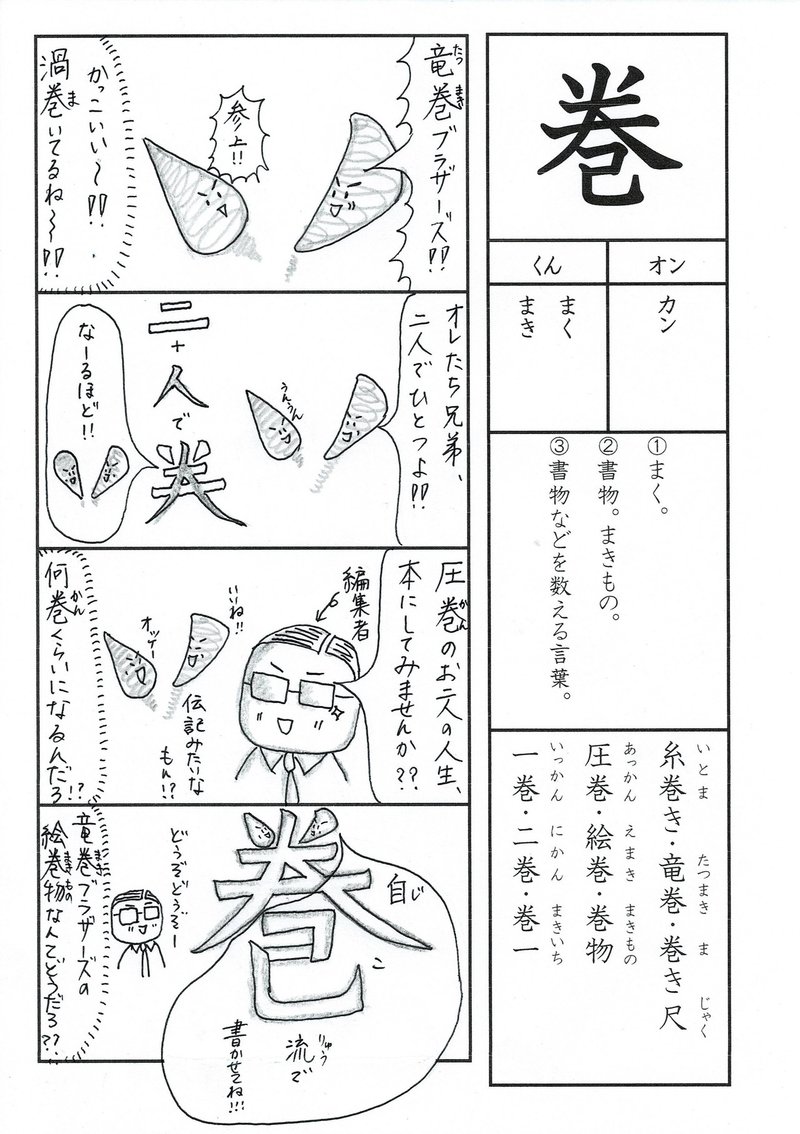 巻
オン
くん
カン
まく
まき
①まく。
②書物。まきもの。
③書物などを数える言葉。
いとま たつまき ま じゃく
糸巻き・竜巻・巻き尺
あっかん えまき まきもの
圧巻・絵巻・巻物
いっかん にかん まきいち
一巻・二巻・巻一
たつまき
竜巻ブラザーズ!!
参上!!
かっこいい〜!!
ま
渦巻いてるね〜!!
オレたち兄弟、
二人でひとつよ!!
うんうん
二
+
人
で
なーるほど!!
かん
圧巻のお二人の人生、
本にしてみませんか??
編集者
いいね!!
オッケー
伝記みたいな
もん!?
かん
何巻くらいになるんだろ!?
巻
じ
自
こ
己
りゅう
流で
書かせてね!!!
どうぞどうぞー
たつまき
竜巻ブラザーズの
まきもの
絵巻物なんてどうだろ??